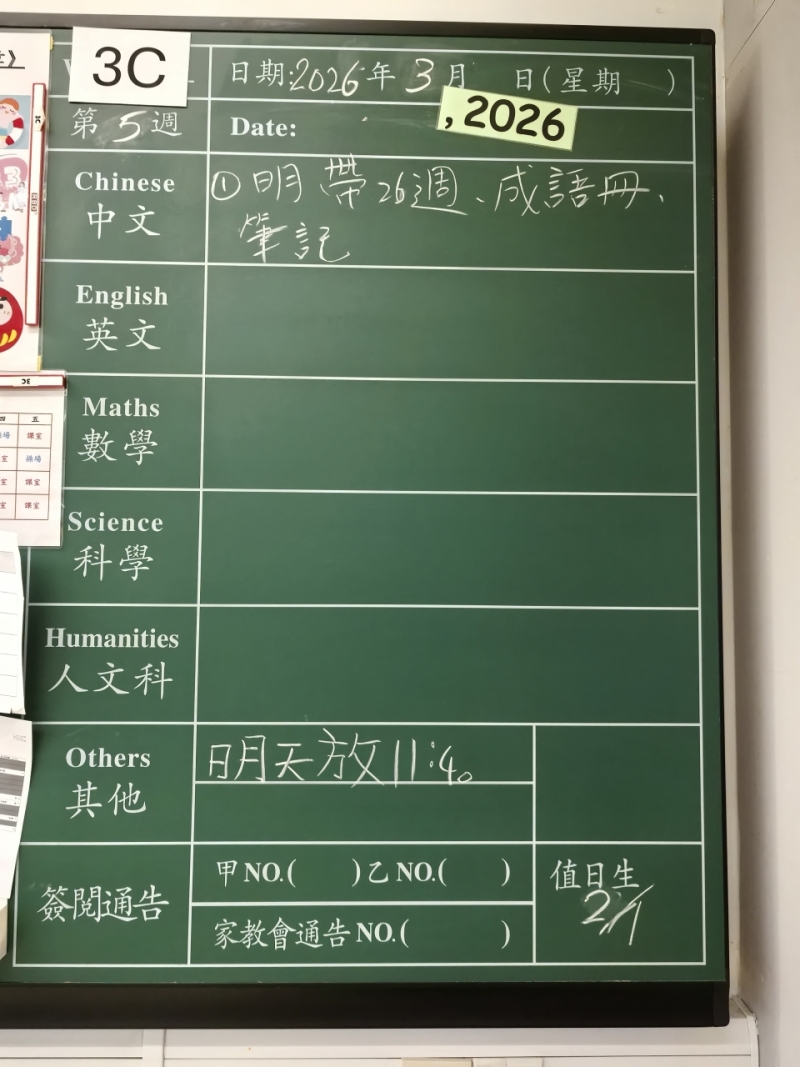 3C
日期:2026年3月 日(星期 )
第5週
Date: , 2026
Chinese
中文
①明帶26週、成語冊、
筆記
English
英文
Maths
數學
Science
科學
Humanities
人文科
Others
其他
明天放11:40
簽閱通告
甲NO.( )乙NO.( )
家教會通告NO.( )
值日生
2/1
四 五
課室
操場
課室
課室